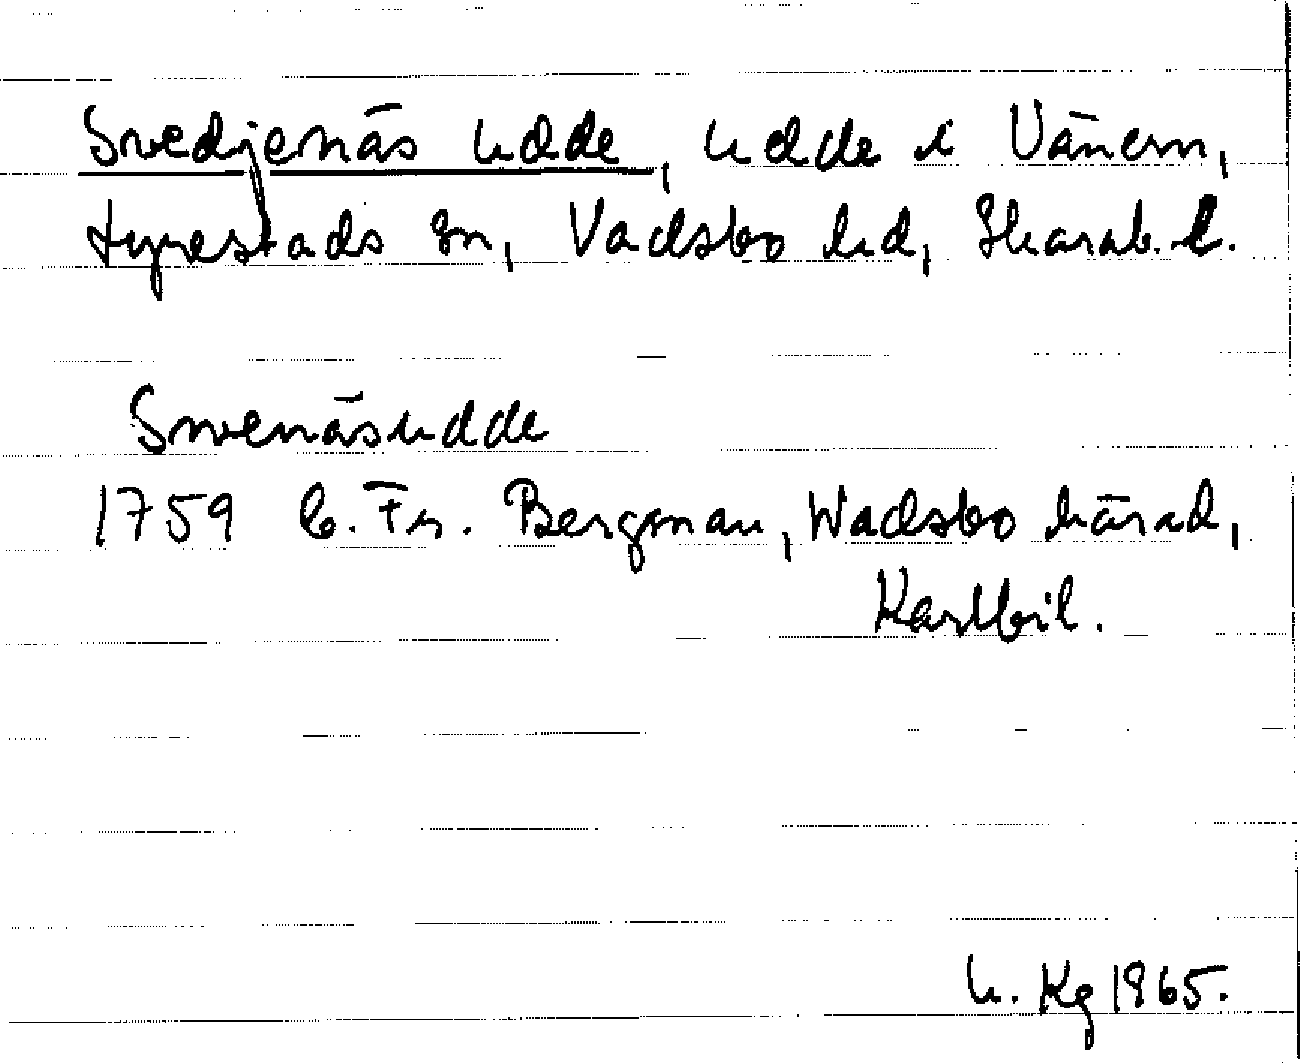 Svedjenäs udde, udde i Vänern,
tyrestads sn, Vadsbo hd, Skarab. l.
Swenäsudde
1759 C. Fr. Bergman, Wadsbo härad,
Kartbil.
U. Kg 1965.